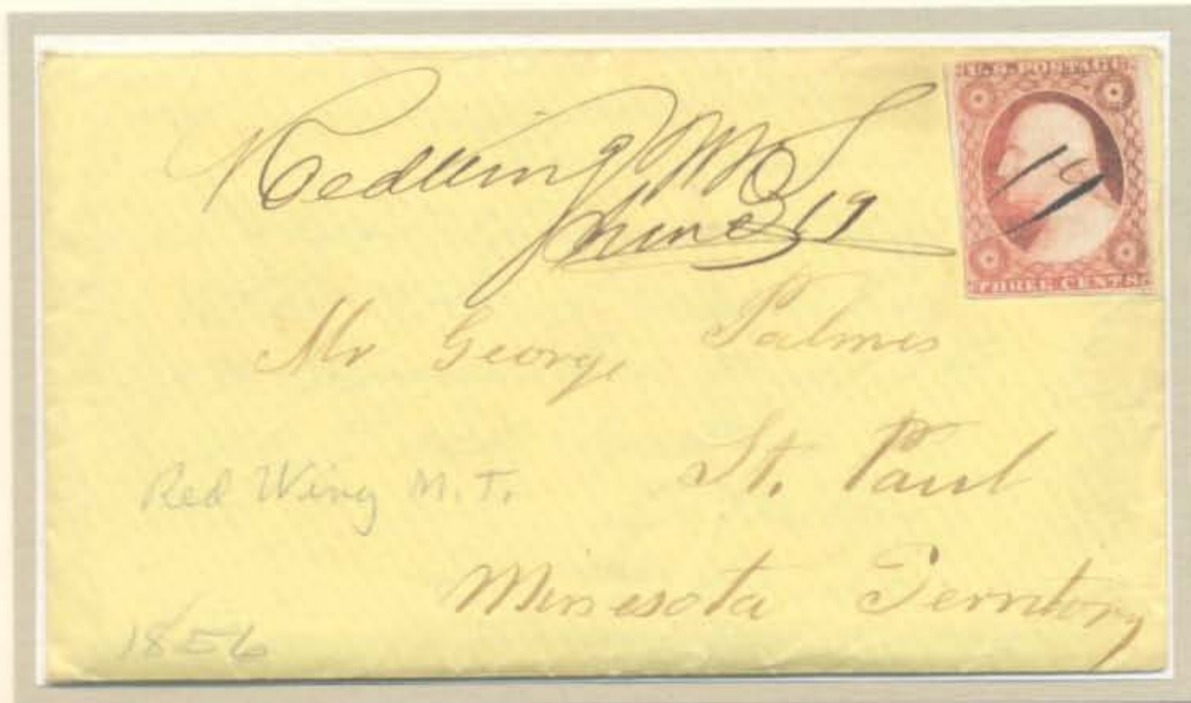 Redwing M T
June 19
U.S. POSTAGE
THREE CENTS
Mr George Palmes
St. Paul
Red Wing M.T.
Minesota Territory
1856